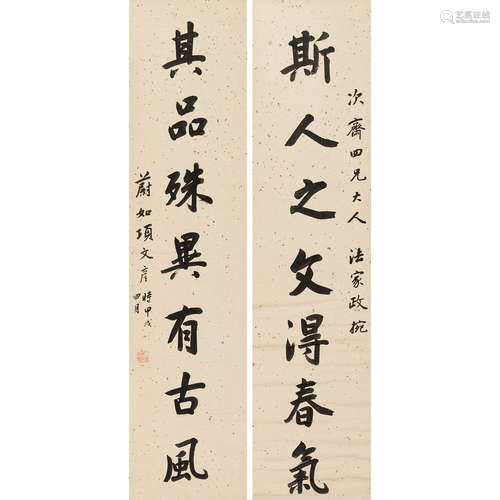 斯人之文得春氣
次齊四兄大人 法家政椀
其品殊異有古風
蔚如項文彦 時甲戌
四月
艺狐在线